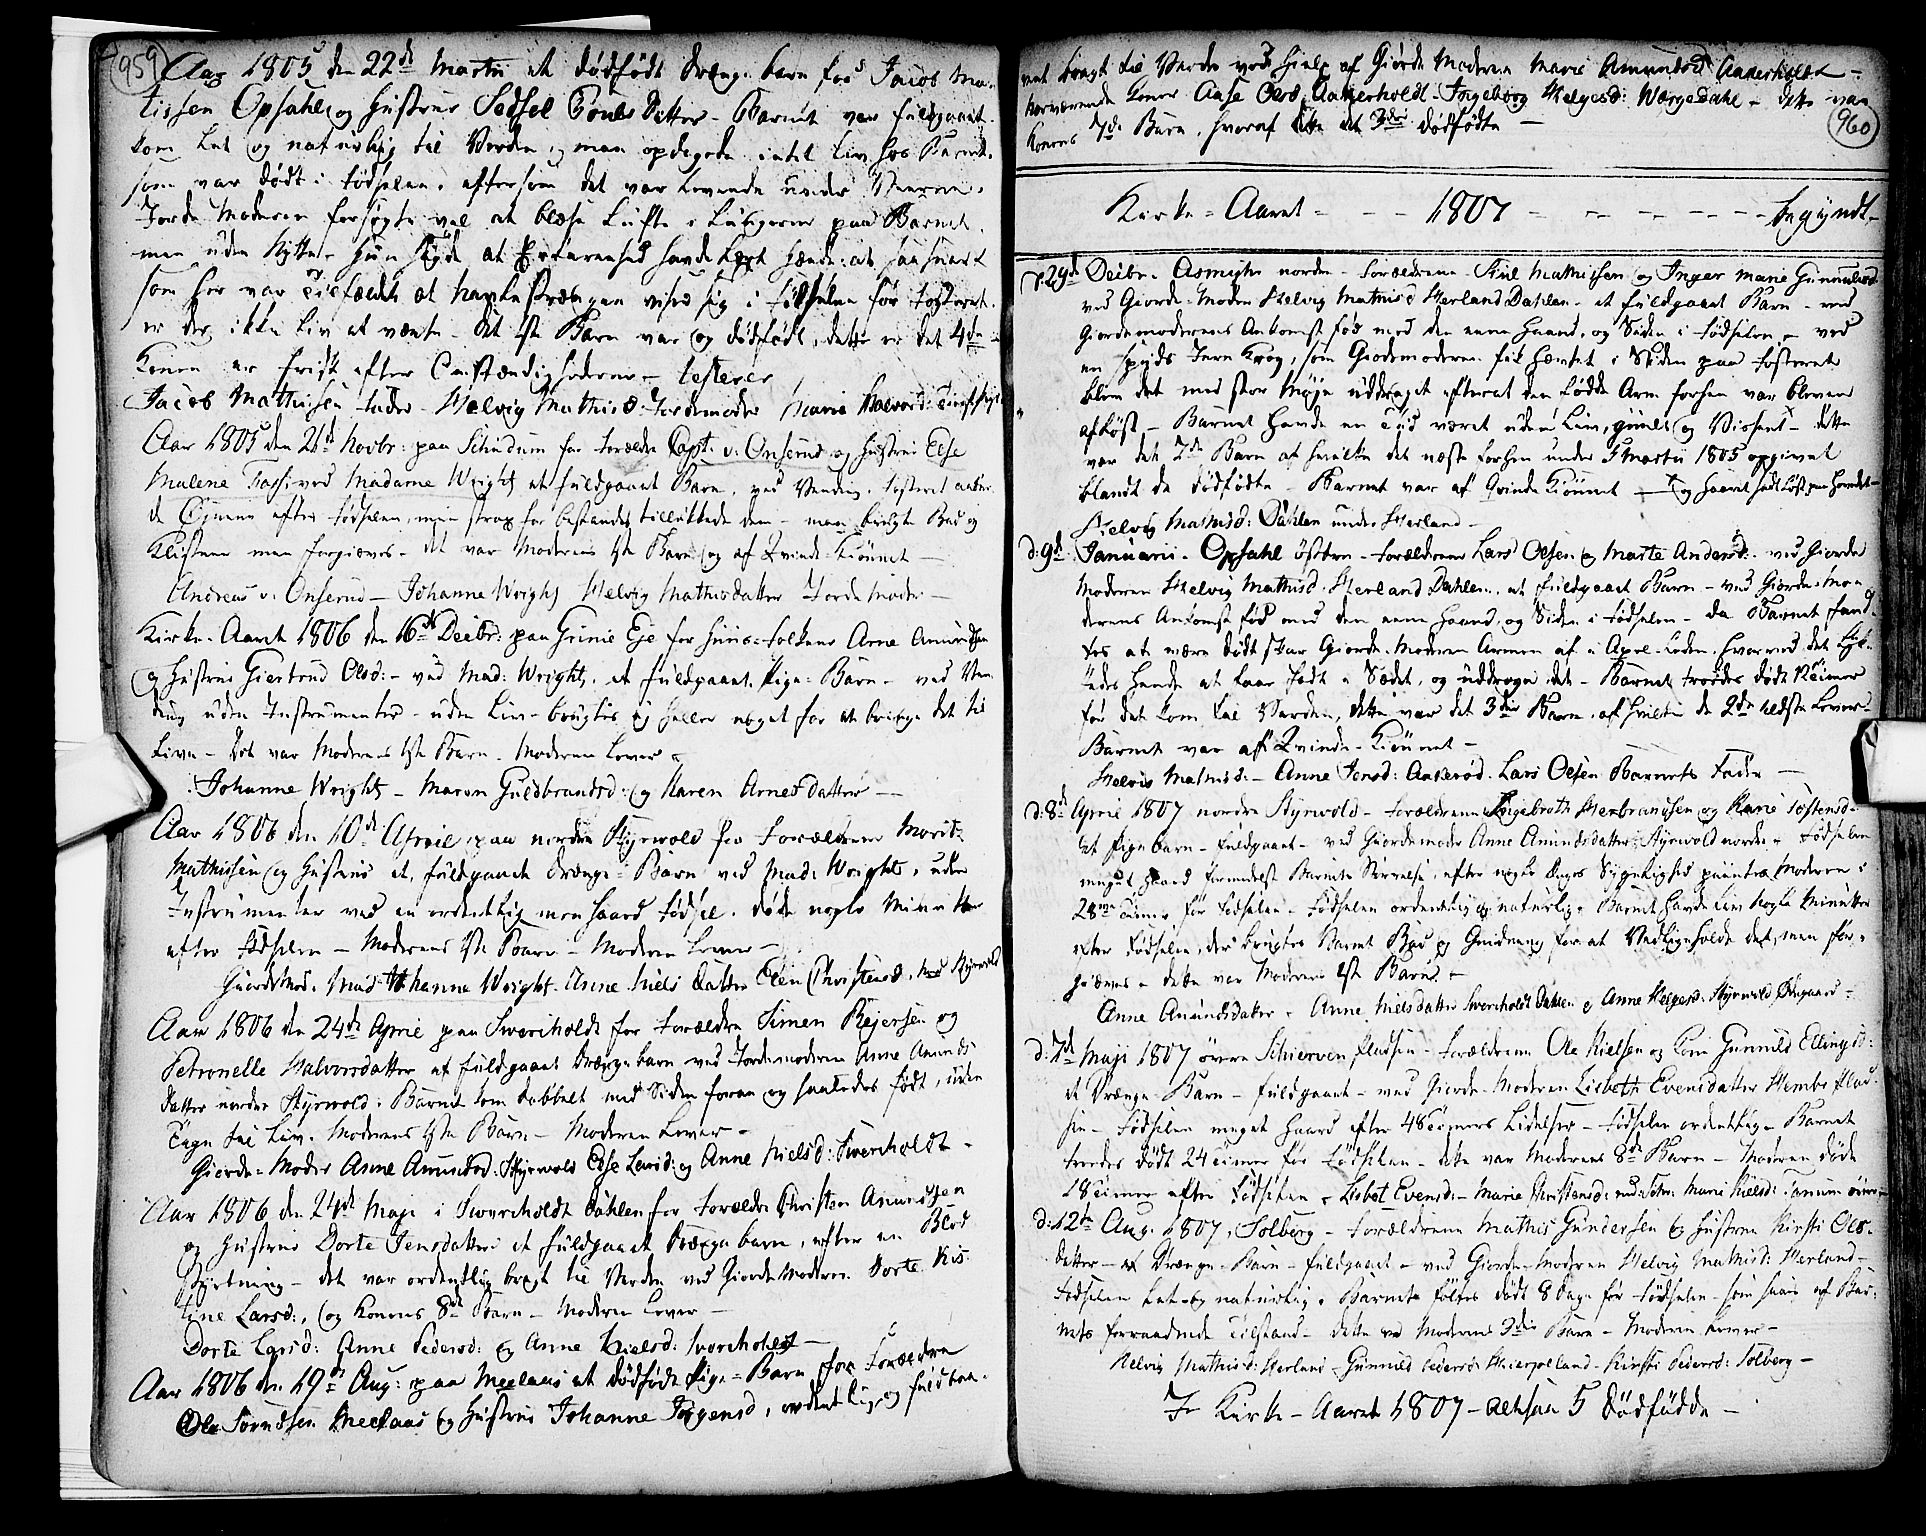 959
Aar 1805 den 22de Martii et dødfødt Drenge barn for Jacob Ma-
tissen Opsahl og Hustrue Sedsel Pouls Datter - Barnet var fuldgaaet.
kom let og naturlig til Verden, man opdagede intet Liv hos Barnet,
som var dødt i Fødselen, eftersom det var levende under Veerne.
Jorde Moderen forsøgte vel at blæse Luft i Lungerne paa Barnet,
men uden Nytte. Hun sagde at Erfarenhed havde lært hende: at saasnart
som her var Tilfældet at Navlestrængen viser sig i Fødselen før Fosteret
er der ikke Liv at vente. Det 1ste Barn var og dødfødt, dette er det 4de
Konen er frisk efter Omstændighederne - testerer
Jacob Mathisen Fader - Helvig Mathisd: Jordemoder Marie Halvord:
Aar 1805 den 21de Novbr: paa Schindum for Forældre Capt: v: Onserud og Hustrue Else
Malene Fossi ved Madame Wright et fuldgaaet Barn, ved Vending. Fosteret aabne-
de Øjnene efter Fødselen, men strax for bestandig tillukkede dem - man brugte Bad og
Klisteer men forgieves - det var Moderens 1ste Barn og af Qvinde-Kiønnet -
Andreas v: Onserud - Johanne Wright Helvig Mathisdatter Jorde Moder -
Kirke-Aaret 1806 den 16de Decbr: paa Grinie Eje for Huus-Folkene Arne Amundsen
og Hustrue Giertrud Olsd: - ved Mad: Wright, et fuldgaaet Pige-Barn - ved Ven-
ding uden Instrumenter - uden Liv - brugtes ej heller noget for at bringe det til
Live - Det var Moderens 1ste Barn. Moderen Lever -
Johanne Wright - Maren Guldbrandsd: og Karen Arnesdatter -
Aar 1806 den 10de April paa nordre Styrvold for Forældrene Morits
Mathissen og Hustrue et fuldgaaet Drenge-Barn ved Mad: Wright, uden
Instrumenter ved en ordentlig men haard Fødsel. døde nogle Minuter
efter Fødselen - Moderens 1ste Barn - Moderen Lever -
Giordemod. Mad Johanne Wright. Anne Niels Datter Elen Christensd. Styrvold
Aar 1806 den 24de April paa Svercholdt for Forældre Simen Rejersen og
Petronelle Halvorsdatter et fuldgaaet Drenge barn ved Jordemoderen Anne Amunds-
datter nordre Styrvold: Barnet kom dobbelt med Siden foran og saaledes født, uden
Tegn til Liv. Moderens 1ste Barn - Moderen Lever -
Giorde-Moder Anne Amundsd. Styrvold Else Larsd: og Anne Nielsd: Sverholdt -
Aar 1806 den 24de Maji i Sverholdt Dahlen for Forældre Christen Amundsen
og Hustrue Dorte Jensdatter et fuldgaaet Drenge barn, efter en Blod
Styrtning - det var ordentlig bragt til Verden ved Giorde Moderen Dorte Kis-
tine Larsd:, og Konens 8de Barn - Moderen Lever -
Dorte Larsd: Anne Pedersd: og Anne Nielsd: Sverholdt -
Aar 1806 den 19de Aug: paa Meelaas et dødfødt Pige-Barn for Forældre
Ole Sørensen Meelaas og Hustrue Johanne Jørgensd, ordentlig og fuldbaa-
960
net bragt til Verden ved Hielp af Giorde Moderen Marie Amundsd Aakerholdt -
nærværende Koner Aase Olsd. Aakerholdt - Ingeborg Helgesd: Wærgedahl - dette var
Konens 7de Barn, hvoraf dette det 3die dødfødte -
Kirke-Aaret - - - 1807 - - - - - - begyndt
d: 29de Decbr. Asmyhr nordre - Forældrene Siul Mathissen og Inger Marie Gunnulsd.
ved Giorde-Moder Helvig Mathisd Herland Dahlen - et fuldgaaet Barn - ved
Giordemoderens Ankomst fød med den eene Haand, og Siden i Fødselen - ved
en Spids Jern Krog, som Giordemoderen fik hæftet i Siden paa Fosteret
blev det med stor Møje uddraget efterat den fødde Arm forhen var bleven
afløst - Barnet havde en Tid været uden Liv, guult og Vissent - dette
var det 7de Barn af hvilke det næste forhen under Martii 1805 opgivet
blandt de dødfødte - Barnet var af Qvinde Kiønnet - og Haaret sad løst paa Hovedet -
Helvig Mathisd: Dahlen under Herland -
d: 9de Januarii - Opsahl østre - Forældrene Lars Olsen og Marte Andersd: - ved Giorde
Moderen Helvig Mathisd. Herland Dahlen. et fuldgaaet Barn - ved Giorde-Mo-
derens Ankomst fød med den eene Haand, og Siden i Fødselen - da Barnet fand-
tes at være dødt skar Giorde-Moderen Armen af i Axel-Leden, hvorved det lyk-
kedes hende at faae fadt i Sædet, og uddrage det - Barnet troedes dødt 12 Timer
før det kom til Verden, dette var det 3die Barn, af hvilke de 2de ældste Lever -
Barnet var af Qvinde-Kiønnet -
Helvig Mathisd. - Anne Jensd: Aakerød. Lars Olsen Barnets Fader -
d: 8de April 1807 nordre Styrvold - Forældrene Engebreth Herbrandsen og Karie Tostensd -
et Pigebarn - fuldgaaet - ved Giordemoder Anne Amundsdatter Styrvold nordre - Fødselen
meget haard formedelst Barnets Størrelse, efter nogle Dages Sygelighed Moderen i
28 Timer før Fødselen - Fødselen ordentlig og naturlig - Barnet havde Liv nogle Minutter
efter Fødselen, der brugtes Varmt Bad og Gnidning for at Vedligeholde det, men for-
gieves - dette var Moderens 1ste Barn -
Anne Amundsdatter - Anne Nielsdatter Sverholdt Dahlen og Anne Helgesd: Styrvold Ødegaard -
d: 7de Maji 1807 øvre Schierven Fladsen - Forældrene Ole Nielsen og Kone Gunnild Ellingsd:
et Drenge-Barn - fuldgaaet - ved Giorde-Moderen Lisbeth Evensdatter Hembs Flad-
sen - Fødselen meget haard efter 48 Timers Lidelser - Fødselen ordentlig - Barnet
troedes dødt 24 Timer før Fødselen - dette var Moderens 8de Barn - Moderen døde
18 Timer efter Fødselen - Lisbet Evensd: - Marie Christensd: Marie Nielsd: øvre
d: 12te Aug. 1807, Solberg - Forældrene Mathis Gundersen og Hustrue Kirsti Ols-
datter - et Drenge-Barn - fuldgaaet - ved Giorde-Moderen Helvig Mathisd: Herland -
Fødselen let og naturlig. Barnet føltes dødt 8 Dage før Fødselen - som saaes af Bar-
nets forraadnede Tilstand - dette var Moderens 3die Barn - Moderen Lever -
Helvig Mathisd: Herland - Gunnild Pedersd: - Kirsti Pedersd: Solberg -
I Kirke-Aaret 1807 - altsaa 5 Dødfødde -